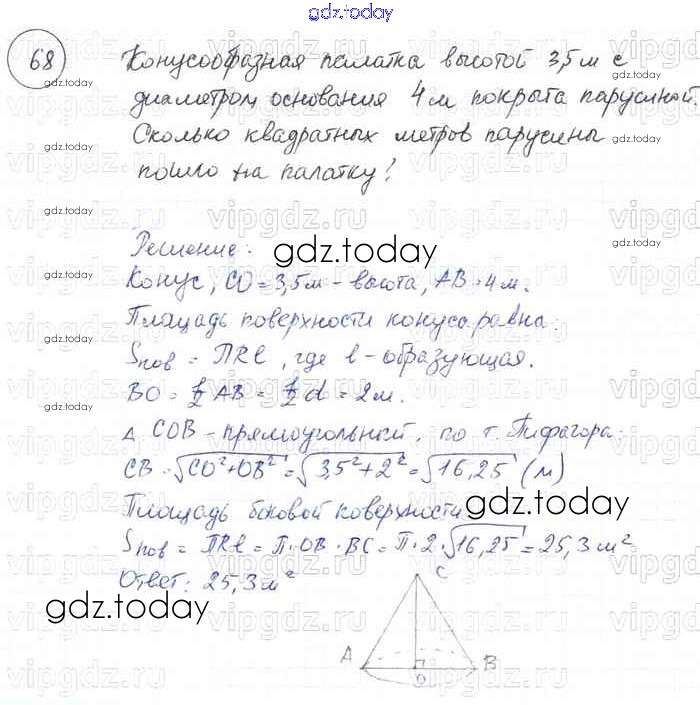 gdz.today
68 Конусообразная палатка высотой 3,5 м с
диаметром основания 4 м покрыта парусиной.
Сколько квадратных метров парусины
пошло на палатку?
Решение:
gdz.today
Конус, CO = 3,5 м – высота, AB = 4 м.
Площадь поверхности конуса равна:
Sпов = ПRl, где l – образующая.
BO = 1/2 AB = 1/2 d = 2 м.
Δ COB – прямоугольный, по т. Пифагора:
CB = √CO²+OB² = √3,5²+2² = √16,25 (м)
Площадь боковой поверхности
gdz.today
Sпов = ПRl = П·OB·BC = П·2·√16,25 = 25,3 м²
Ответ: 25,3 м²
gdz.today
C
A
B
O